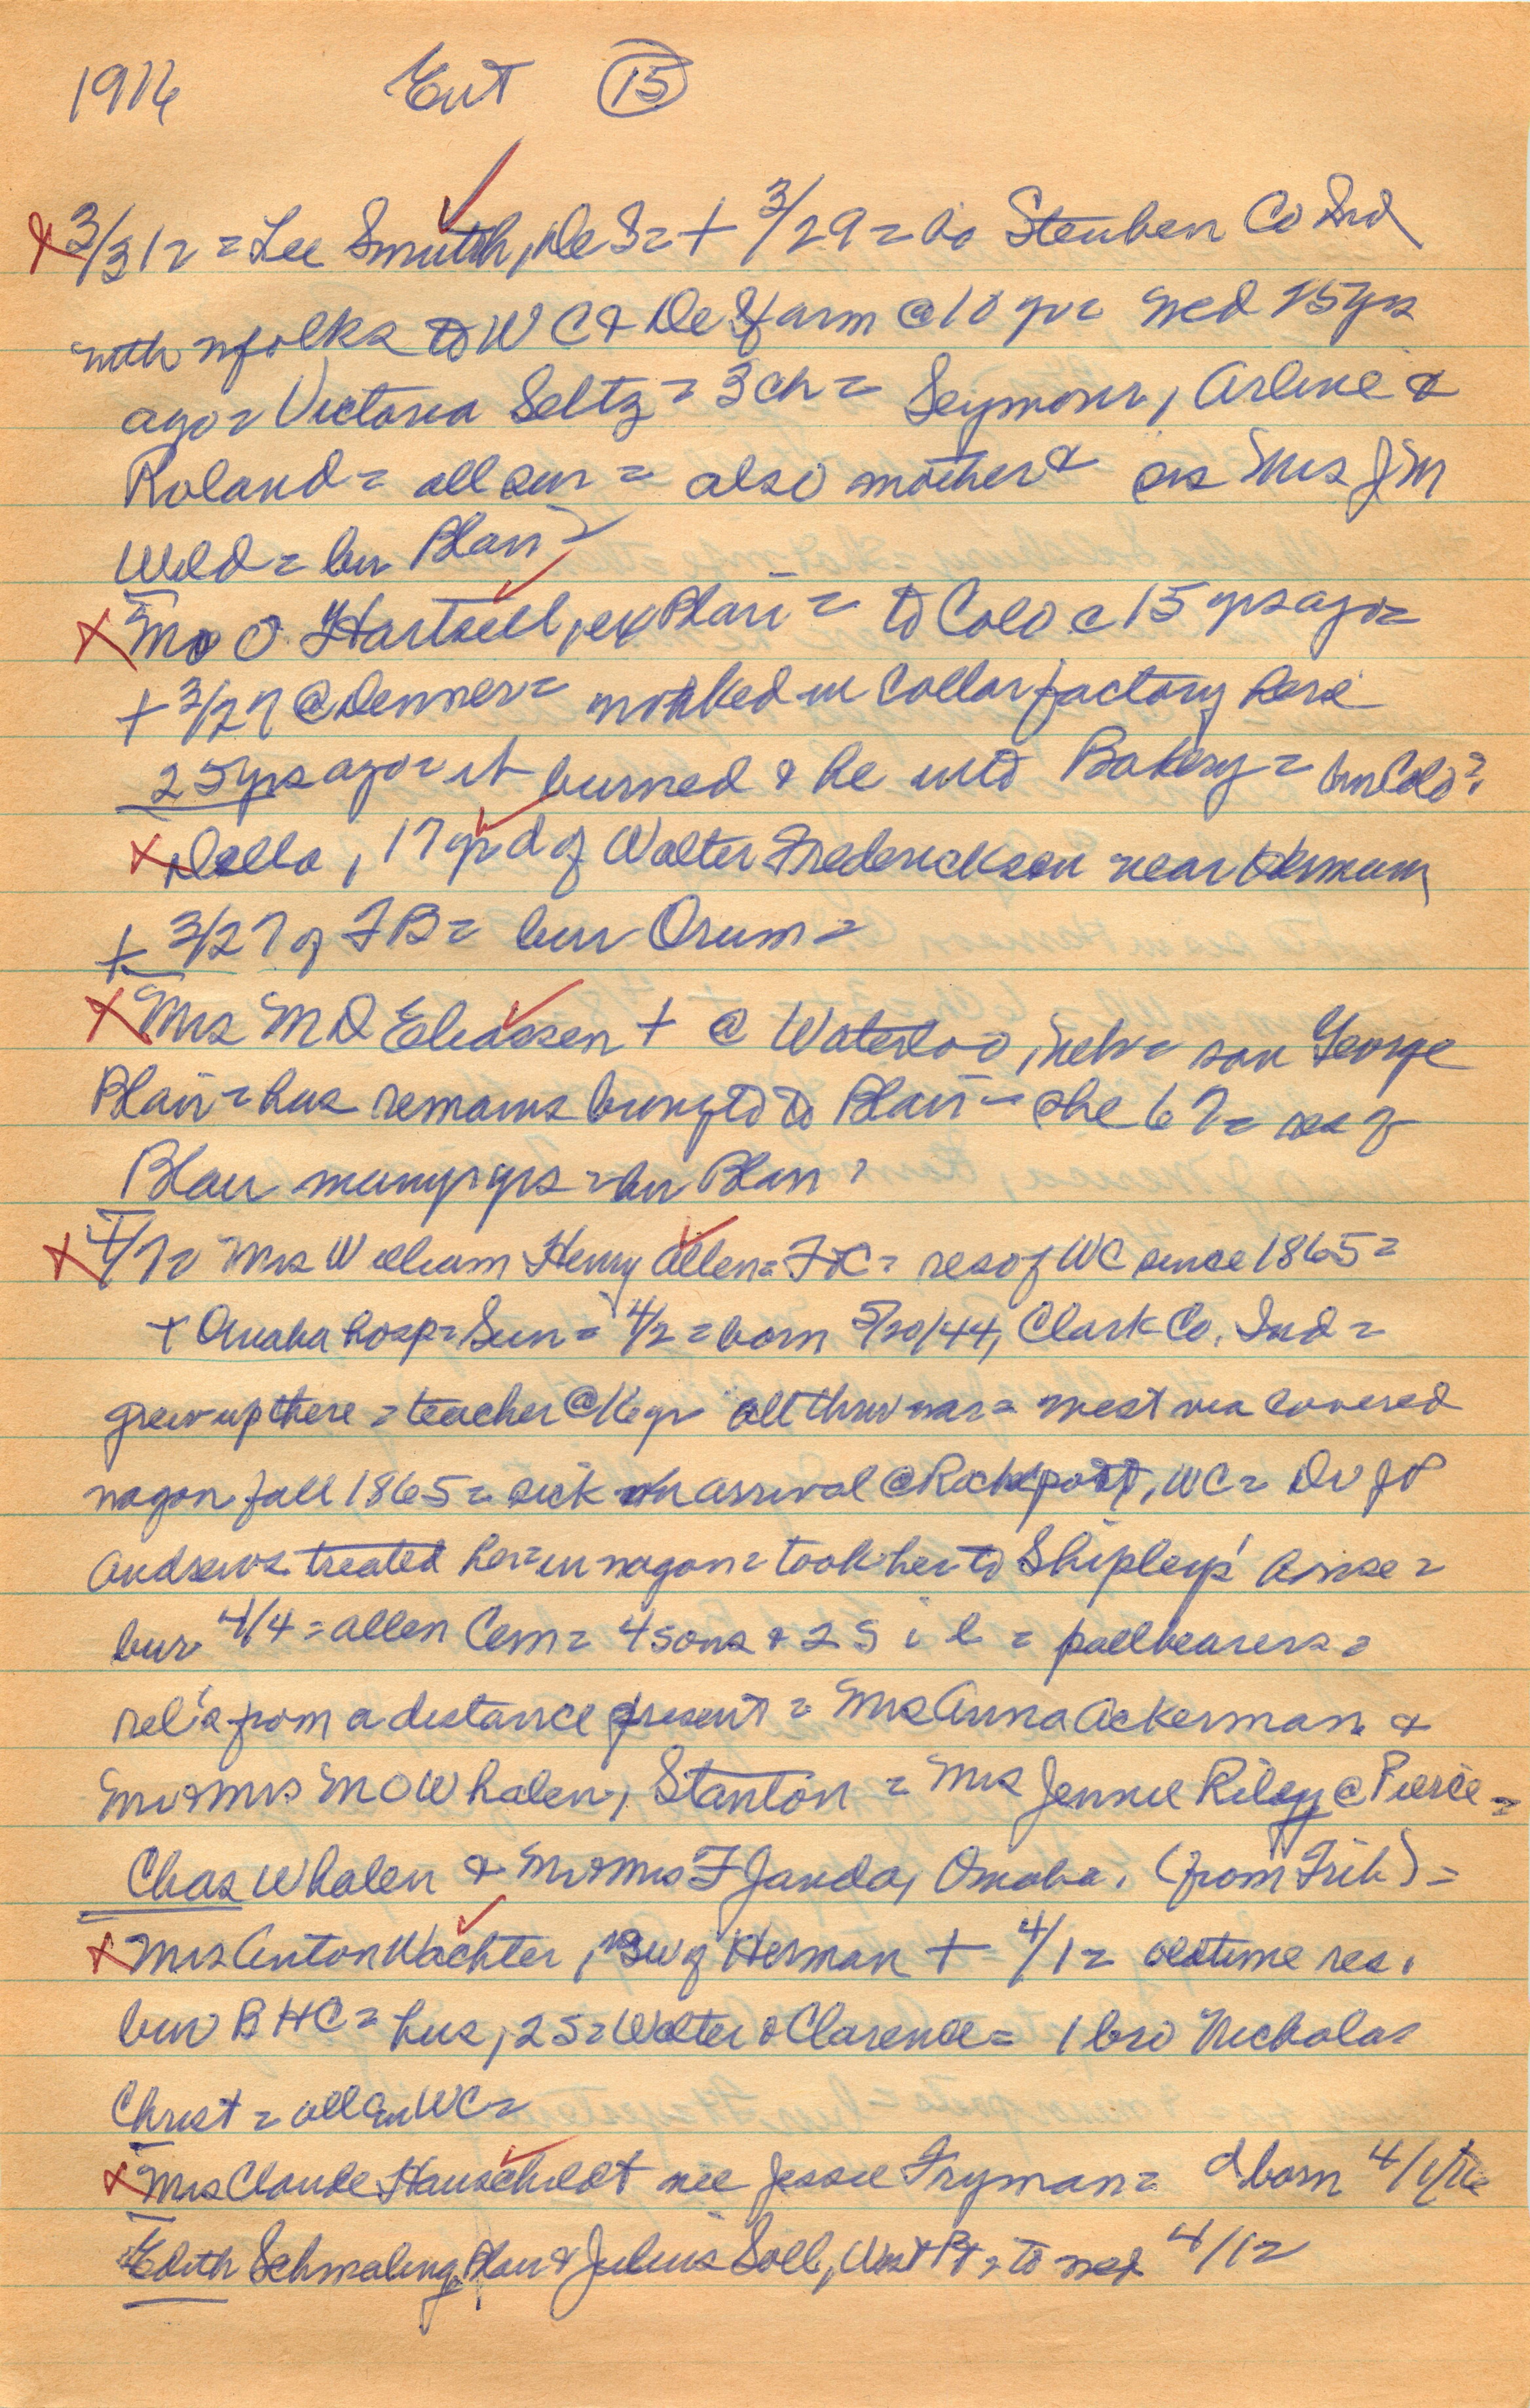 1916 Ent 15
3/31 = Lee Smith, De S = + 3/29 = bo Steuben Co Ind
with folks to WC & De S farm @ 10 yr = wed 15 yrs
ago = Victoria Seltz = 3 ch = Seymour, Arline &
Roland = all sur = also mother & sis Mrs J M
Wild = bur Blair =
O. Hartsell, ex Blair = to Colo @ 15 yrs ago =
+ 3/27 @ Denver = worked in Collar factory here
25 yrs ago = it burned & he into Bakery = bur Colo?
Della, 17 yr d of Walter Frederickson near Herman
+ 3/27 of TB = bur Orum =
Mrs M D Eliassen + @ Waterloo, Neb = son George
Blair = hus remains brought to Blair = she 67 = res of
Blair many yrs = bur Blair?
4/7 = Mrs William Henry Allen = Ft C = res of WC since 1865 =
+ Omaha hosp = Sun = 4/2 = born 5/20/44, Clark Co. Ind =
grew up there = teacher @ 16 yr all thru war = west via covered
wagon fall, 1865 = sick when arrival @ Rockport, WC = Dr J P
Andrews treated her = in wagon = took her to Shipley's house =
bur 4/4 = Allen Cem = 4 sons & 2 S i l = pallbearers =
rel's from a distance present = Mrs Anna Ackerman &
Mr & Mrs M O Whalen, Stanton = Mrs Jennie Riley @ Pierce =
Chas Whalen & Mr & Mrs F Janda, Omaha. (from Trib) =
Mrs Anton Wachter, SW of Herman + 4/1 = oldtime res.
bur B H C = hus, 2 S = Walter & Clarence = 1 bro Nicholas
Christ = all in WC =
Mrs Claude Hauschildt nee Jessie Fryman = d born 4/1/16
Edith Schmaling, Blair & Julius Soll, West Pt = to wed 4/12